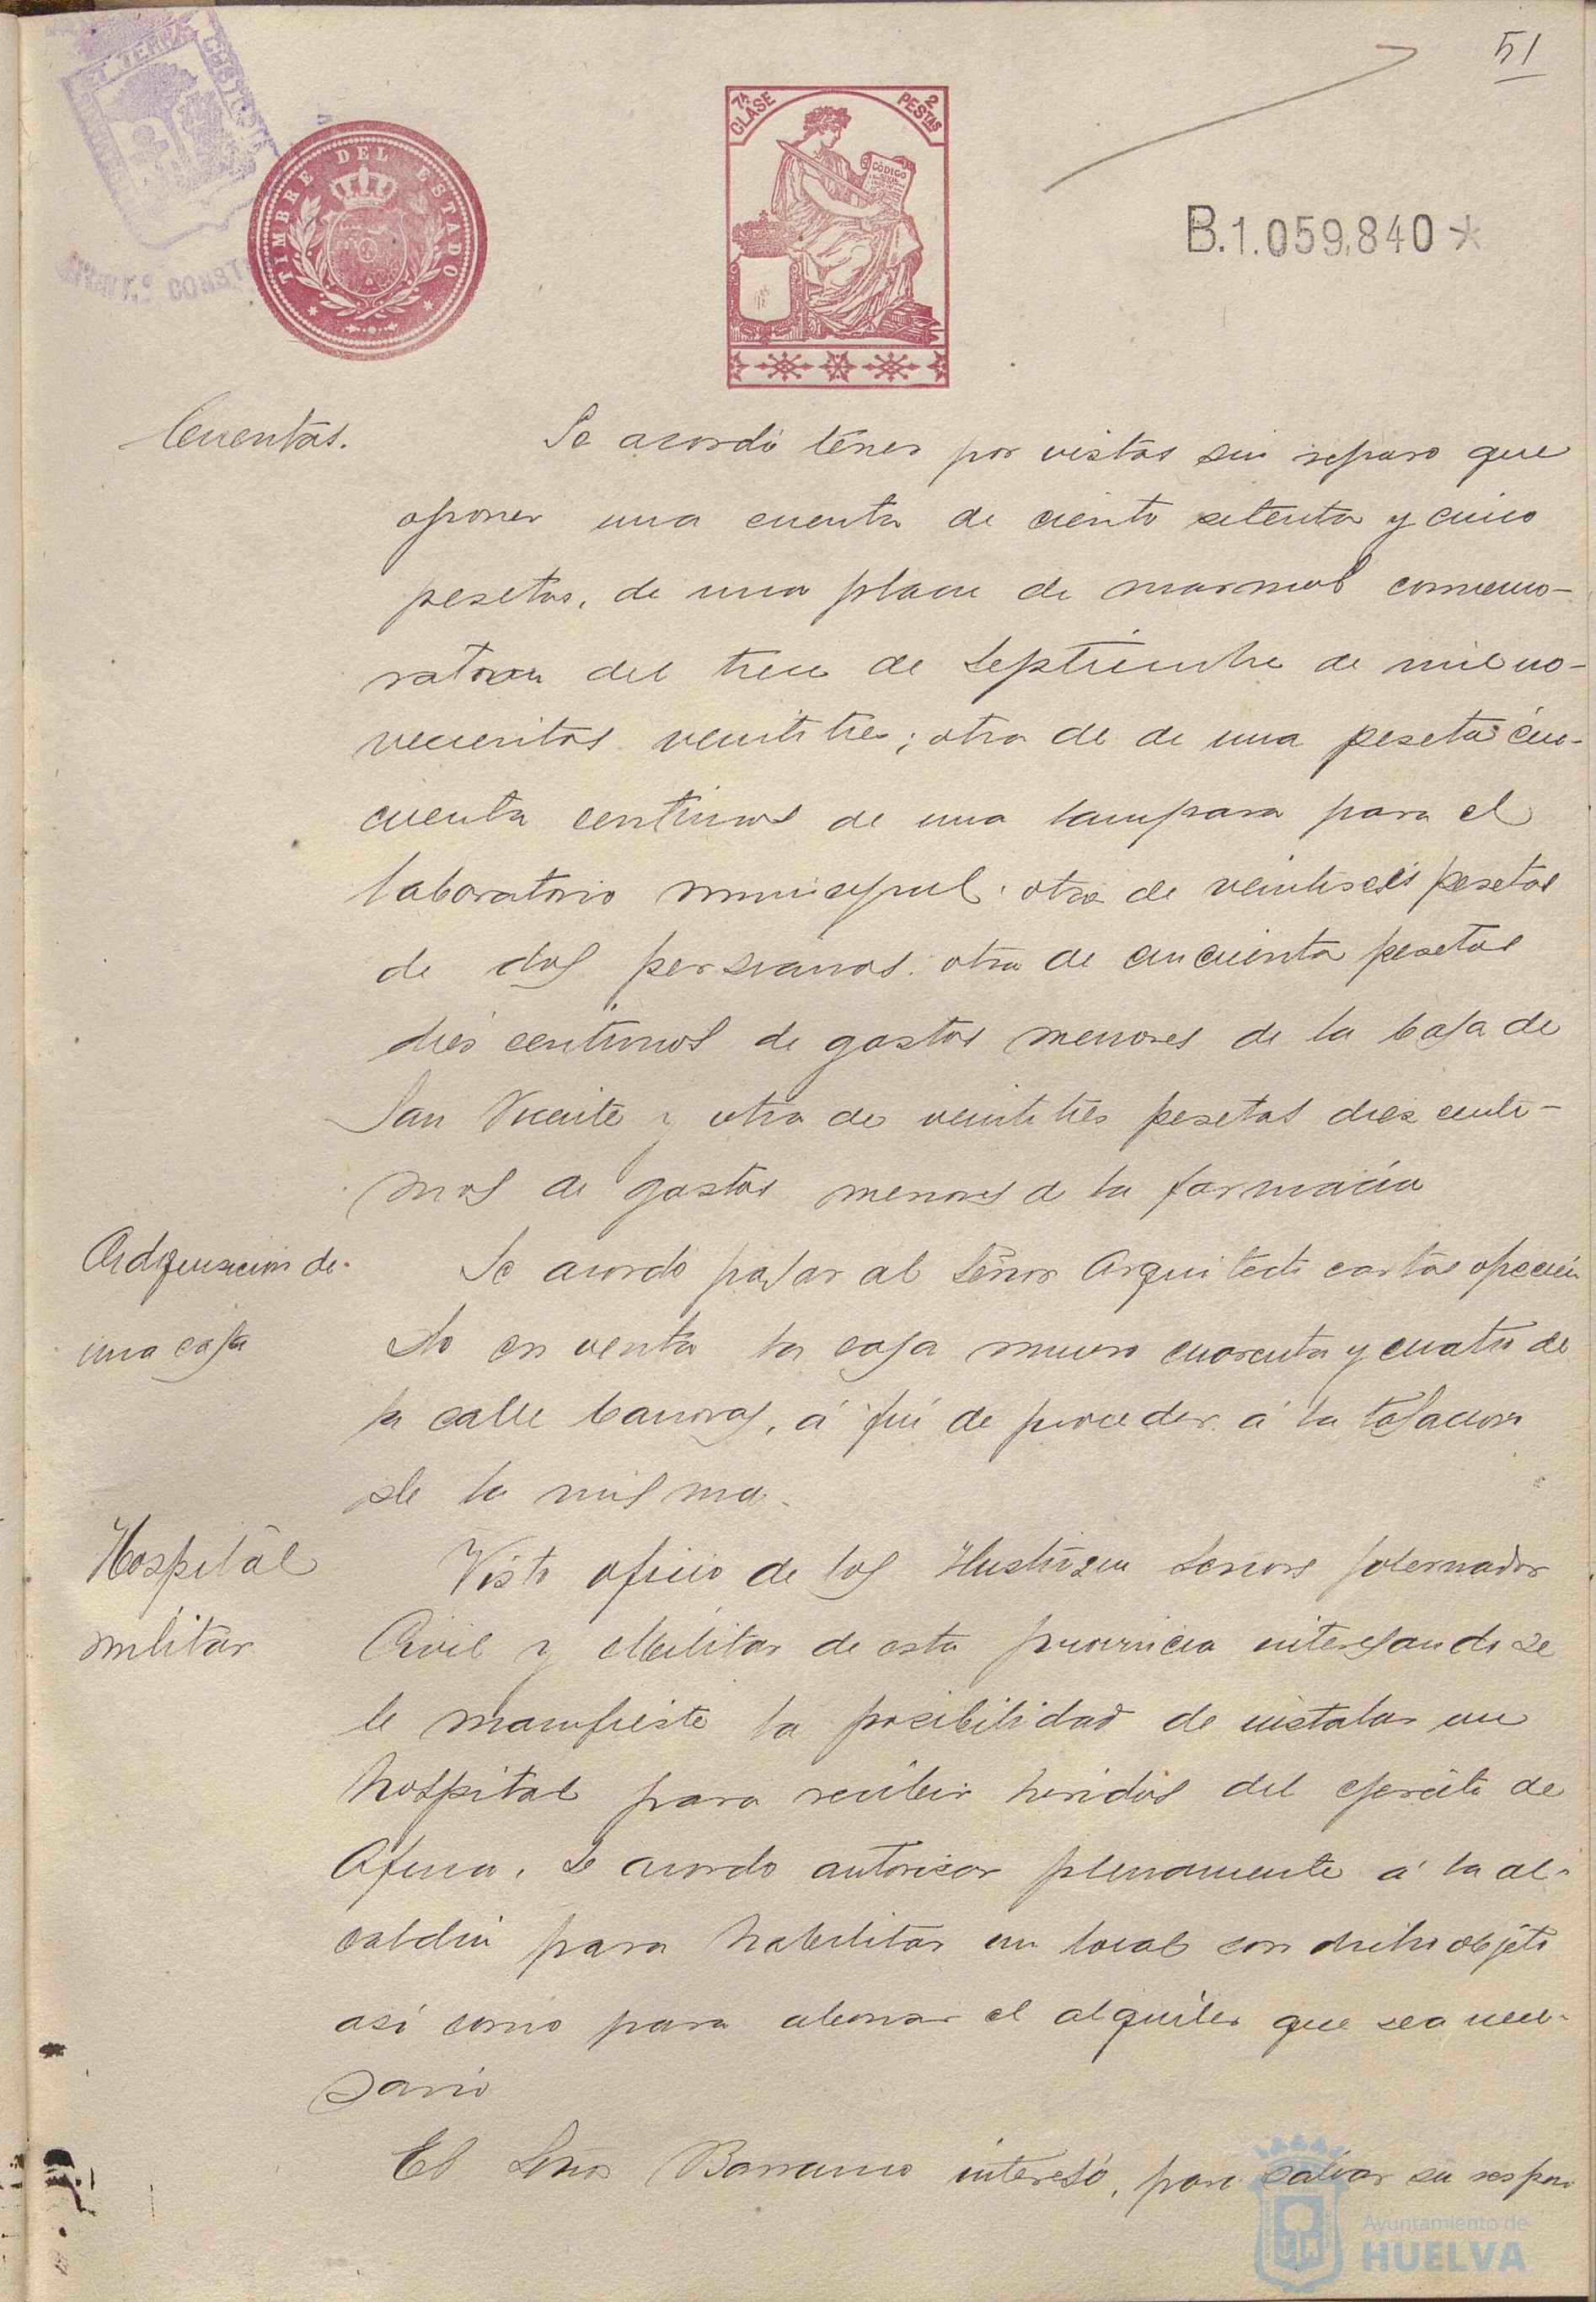 51
7ª CLASE
2 PESTAS
CODIGO
TIMBRE DEL ESTADO
B.1.059,840*
Cuentas.
Se acordó tener por vistas sin reparo que
oponer una cuenta de ciento setenta y cinco
pesetas, de una placa de marmol conmemo-
ratoria del trece de Septiembre de mil no-
vecientos veintitres; otra de de una peseta cin-
cuenta centimos de una lampara para el
laboratorio municipal; otra de veintiseis pesetas
de dos persianas; otra de cincuenta pesetas
dies centimos de gastos menores de la Casa de
San Vicente y otra de veintitres pesetas diez centi-
mos de gastos menores de la farmacia
Adquisicion de
una casa
Se acordo pasar al Señor Arquitecto cartas ofrecien
do en venta la casa numero cuarenta y cuatro de
la calle Canovas, á fin de proceder á la tasacion
de la misma.
Hospital
militar
Visto oficio de los Ilustrisimos Señores Gobernador
Civil y Militar de esta provincia interesando se
le manifieste la posibilidad de instalar un
hospital para recibir heridos del ejercito de
Africa, se acordo autorizar plenamente á la al-
caldia para habilitar un local con dicho objeto
así como para abonar el alquiler que sea nece-
sario
El Señor Barranco interesó, para salvar su respon
Ayuntamiento de
HUELVA